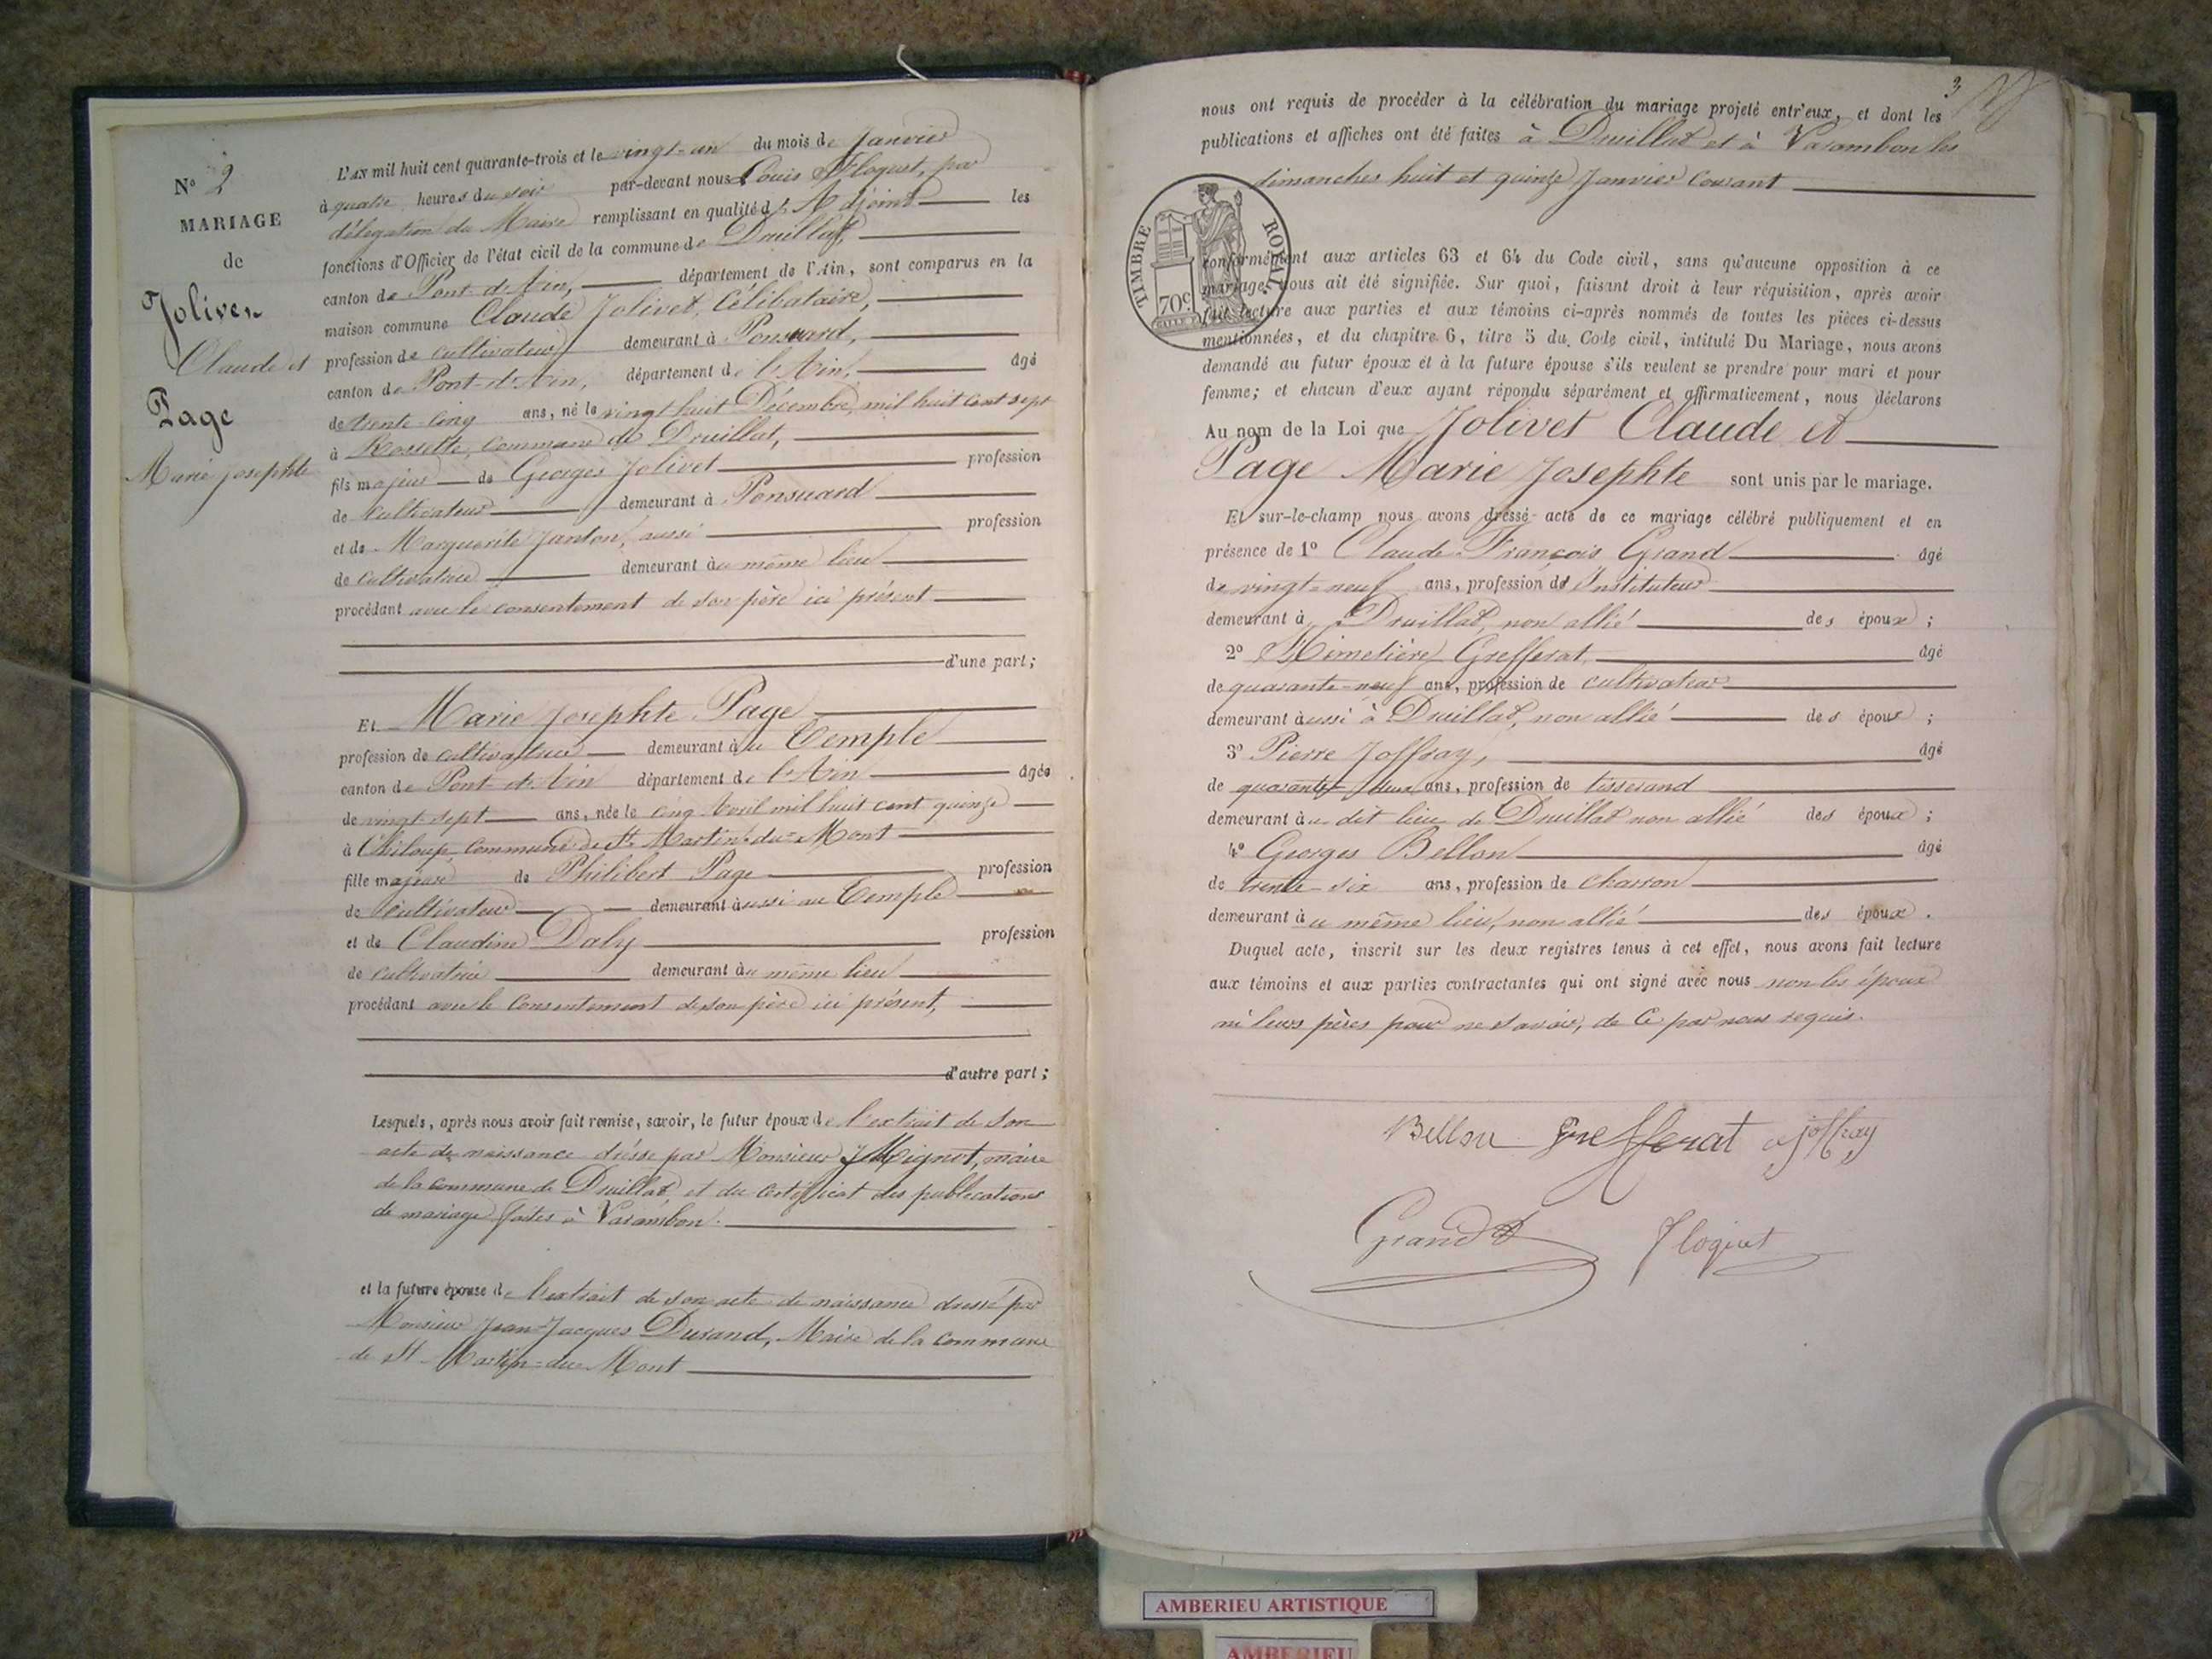 N° 2
MARIAGE
de
Jolivet
Claude et
Page
Marie Josephte
L'AN mil huit cent quarante-trois et le vingt-un du mois de Janvier
à quatre heures du soir par-devant nous Louis Floquet, par
délégation du Maire remplissant en qualité d'Adjoint les
fonctions d'Officier de l'état civil de la commune de Druillat,
canton de Pont-d'Ain, département de l'Ain, sont comparus en la
maison commune Claude Jolivet, Célibataire,
profession de cultivateur demeurant à Ponsuard,
canton de Pont-d'Ain, département de l'Ain, âgé
de trente-cinq ans, né le vingt huit Décembre, mil huit cent sept
à Rossette, commune de Druillat,
fils majeur de Georges Jolivet profession
de cultivateur demeurant à Ponsuard
et de Marguerite Janton, aussi profession
de cultivatrice demeurant au même lieu
procédant avec le consentement de son père ici présent
d'une part;
Et Marie Josephte Page
profession de cultivatrice demeurant au Temple
canton de Pont-d'Ain département de l'Ain âgée
de vingt-sept ans, née le cinq Avril mil huit cent quinze
à Chiloup, commune de St Martin-du-Mont
fille majeure de Philibert Page profession
de cultivateur demeurant aussi au Temple
et de Claudine Daly profession
de cultivatrice demeurant au même lieu
procédant avec le consentement de son père ici présent,
d'autre part;
Lesquels, après nous avoir fait remise, savoir, le futur époux de l'extrait de son
acte de naissance dréssé par Monsieur Mignot, maire
de la commune de Druillat, et du certificat des publications
de mariage faites à Varambon.
et la future épouse de l'extrait de son acte de naissance dressé par
Monsieur Jean-Jacques Durand, Maire de la commune
de St Martin-du-Mont
3
nous ont requis de procéder à la célébration du mariage projeté entr'eux, et dont les
publications et affiches ont été faites à Druillat et à Varambon les
dimanches huit et quinze Janvier Courant
TIMBRE ROYAL
70c.
conformément aux articles 63 et 64 du Code civil, sans qu'aucune opposition à ce
mariage nous ait été signifiée. Sur quoi, faisant droit à leur réquisition, après avoir
fait lecture aux parties et aux témoins ci-après nommés de toutes les pièces ci-dessus
mentionnées, et du chapitre 6, titre 5 du Code civil, intitulé Du Mariage, nous avons
demandé au futur époux et à la future épouse s'ils veulent se prendre pour mari et pour
femme; et chacun d'eux ayant répondu séparément et affirmativement, nous déclarons
Au nom de la Loi que Jolivet Claude et
Page Marie Josephte sont unis par le mariage.
Et sur-le-champ nous avons dressé acte de ce mariage célébré publiquement et en
présence de 1° Claude-François Grand âgé
de vingt-neuf ans, profession d'Instituteur
demeurant à Druillat, non allié des époux;
2° Greffierat, âgé
de quarante-neuf ans, profession de cultivateur
demeurant aussi à Druillat, non allié des époux;
3° Pierre Joffray, âgé
de quarante-deux ans, profession de tisserand
demeurant au dit lieu de Druillat non allié des époux;
4° Georges Bellon âgé
de trente-six ans, profession de charron
demeurant au même lieu, non allié des époux.
Duquel acte, inscrit sur les deux registres tenus à cet effet, nous avons fait lecture
aux témoins et aux parties contractantes qui ont signé avec nous non les époux
ni leurs pères pour ne savoir, de ce par nous requis.
Bellon Grefferat Joffray
Grand Floquet
AMBERIEU ARTISTIQUE
AMBERIEU